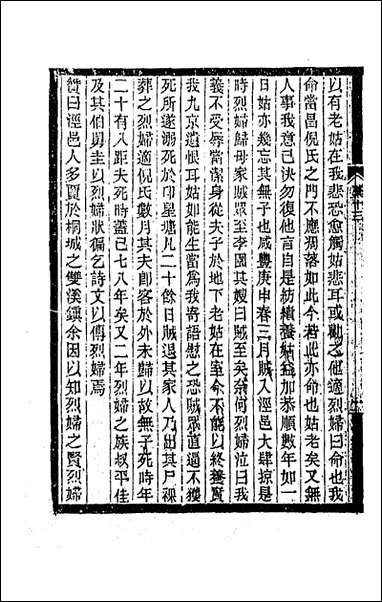 以有老姑在我悲恐愈觸姑悲耳或勸之他適烈婦曰命也我
命當昌倪氏之門不應凋落如此今若此亦命也姑老矣又無
人事我意已決勿復他言自是紡績養姑益加恭順數年如一
日姑亦幾忘其無子也咸豐庚申春三月賊入涇邑大肆掠是
時烈婦歸母家賊眾至李園其嫂曰賊至矣奈何烈婦泣曰我
義不受辱當潔身從夫子於地下老姑在室命不能以終養實
我九京遺恨耳姑如能生當為我寄語慰之恐賊眾道逼不獲
死所遂溺死於印星塘凡二十餘日賊退其家人乃出其尸祼
葬之烈婦適倪氏數月其夫卽客於外未歸以故無子死時年
二十有八距夫死時蓋已七八年矣又二年烈婦之族叔平佳
及其伯舅圭以烈婦狀徧乞詩文以傳烈婦焉
贊曰涇邑人多賈於桐城之雙溪鎮余因以知烈婦之賢烈婦